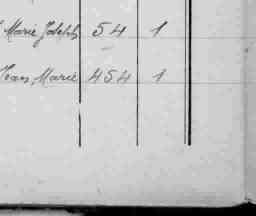 Marie Joseph 54 1
Jean Marie 454 1